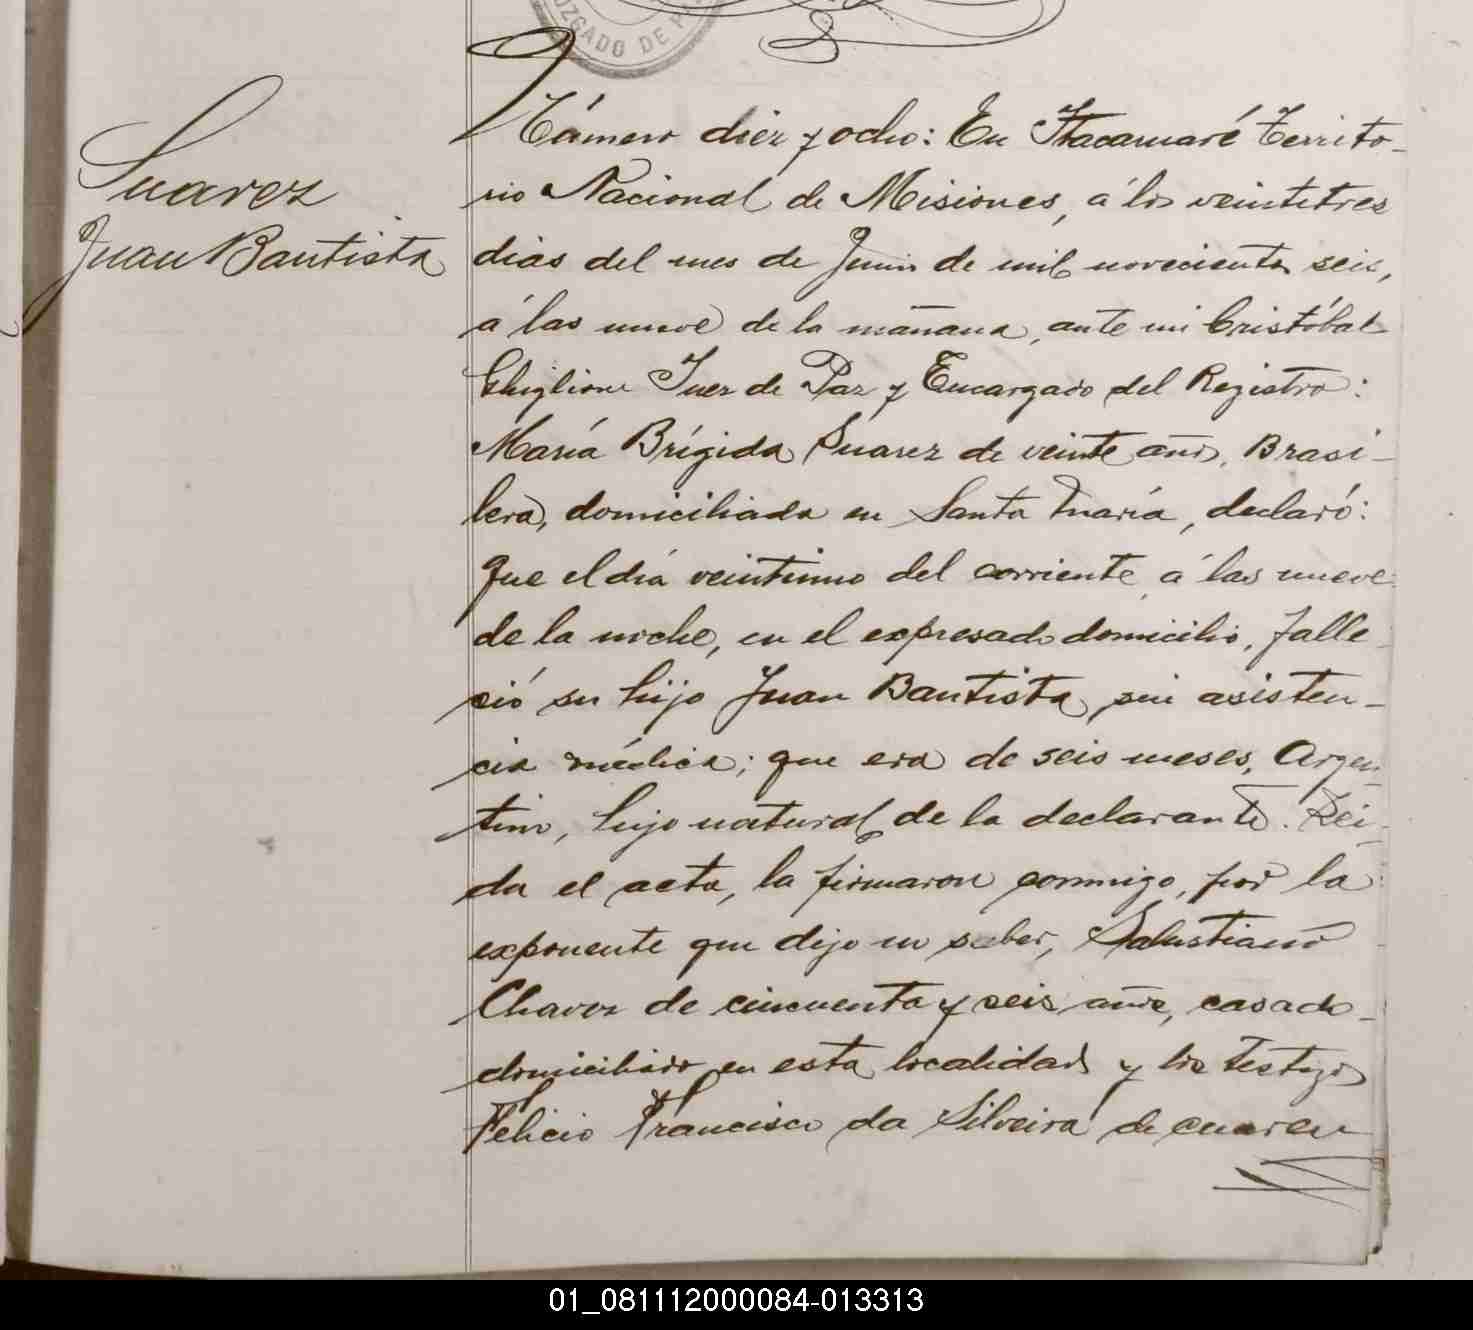 JUZGADO DE P
Suarez
Juan Bautista
Número diez y ocho: En Itacaruaré Territo-
rio Nacional de Misiones, á los veintitres
dias del mes de Junio de mil novecientos seis,
á las nueve de la mañana, ante mi Cristóbal
Ghiglione Juez de Paz y Encargado del Registro:
María Brígida Suarez de veinte años, Brasi-
lera, domiciliada en Santa María, declaró:
Que el día veintiuno del corriente á las nueve
de la noche, en el expresado domicilio, falle-
ció su hijo Juan Bautista, sin asisten-
cia médica; que era de seis meses, Argen-
tino, hijo natural de la declarante. Lei-
da el acta, la firmaron conmigo, por la
exponente que dijo no saber, Salustiano
Chavez de cincuenta y seis años, casado
domiciliado en esta localidad y los testigos
Felicio Francisco da Silveira de cuaren
01_081112000084-013313